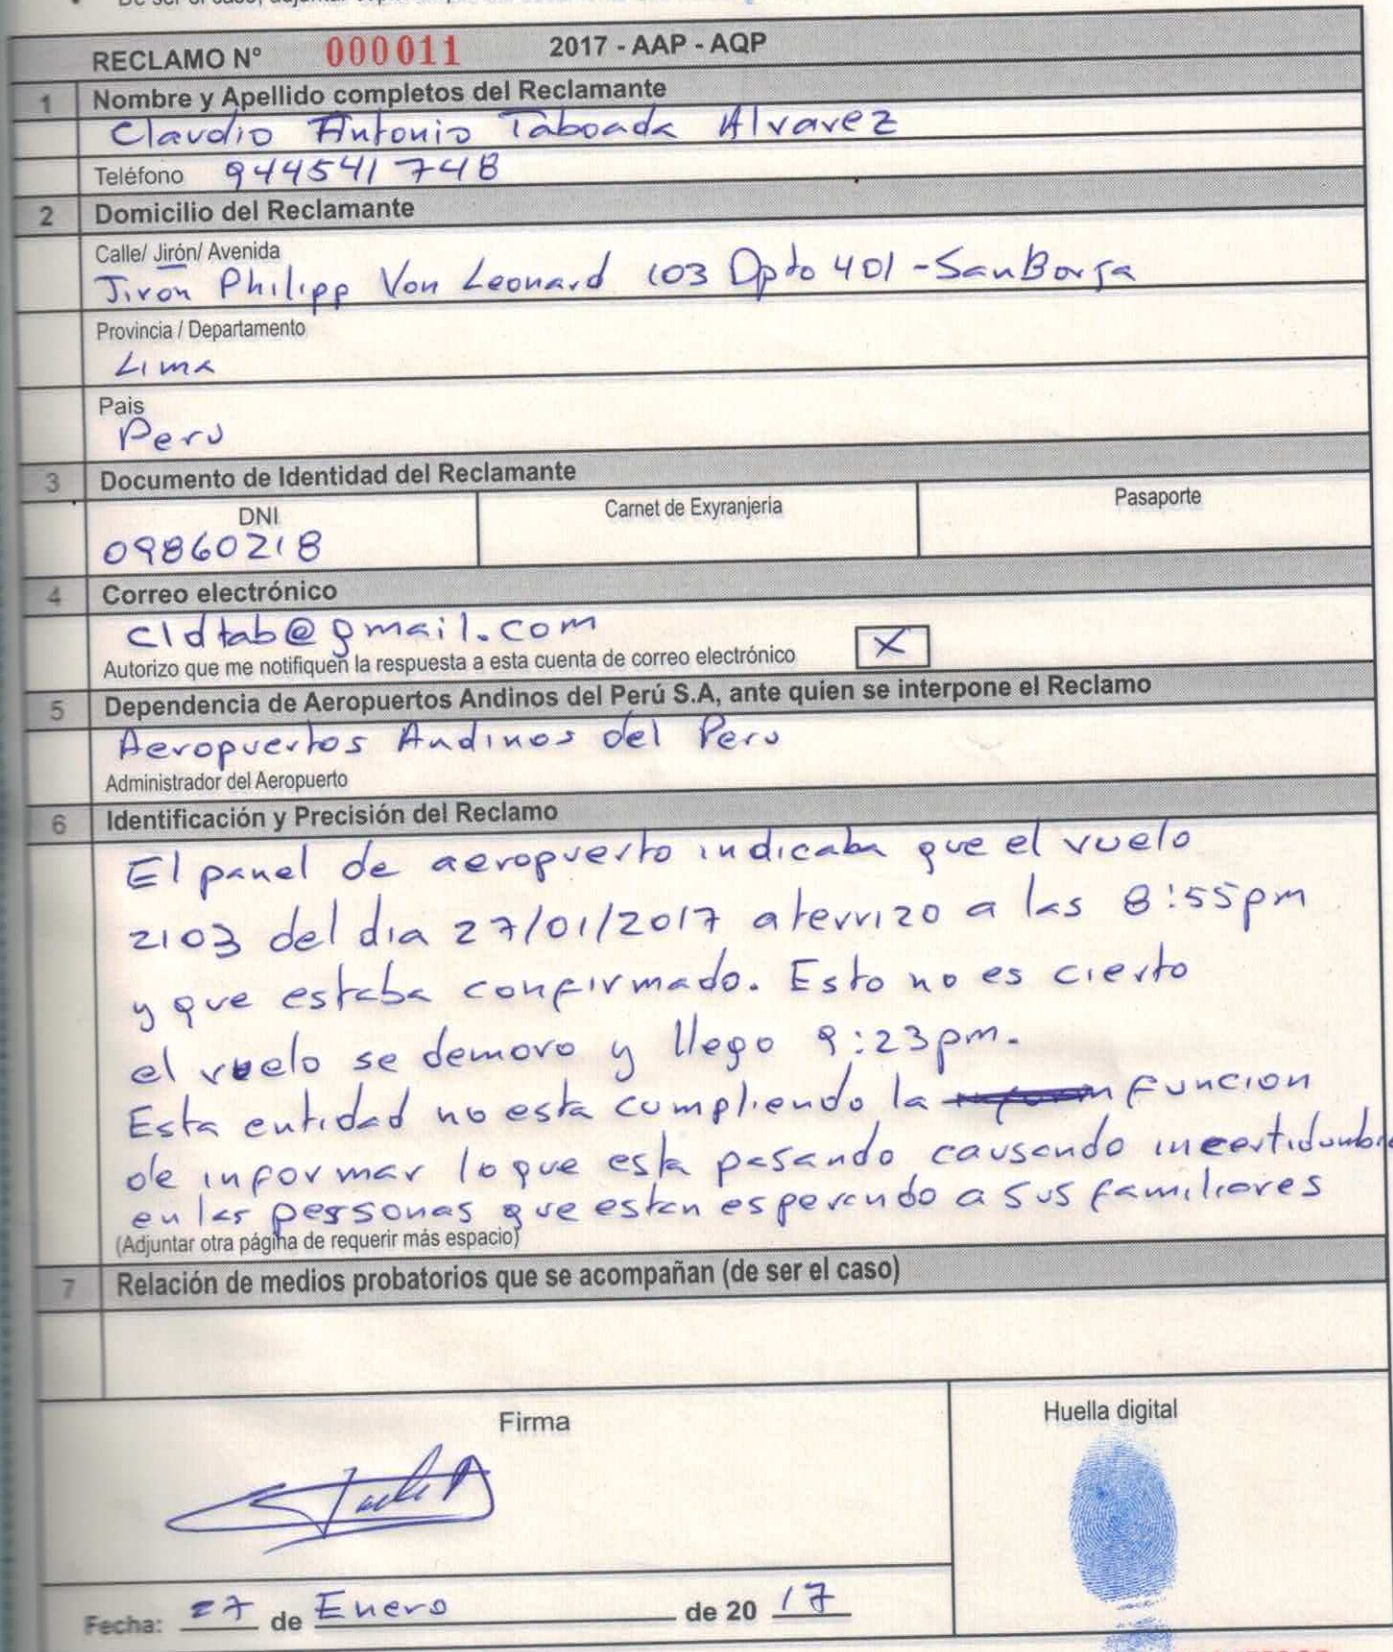 RECLAMO Nº 000011 2017 - AAP - AQP
1 Nombre y Apellido completos del Reclamante
Claudio Antonio Taboada Alvarez
Teléfono 944541748
2 Domicilio del Reclamante
Calle/ Jirón/ Avenida
Jiron Philipp Von Leonard 103 Dpto 401 - San Borja
Provincia / Departamento
Lima
Pais
Peru
3 Documento de Identidad del Reclamante
DNI Carnet de Exyranjeria Pasaporte
09860218
4 Correo electrónico
cldtab@gmail.com
Autorizo que me notifiquen la respuesta a esta cuenta de correo electrónico X
5 Dependencia de Aeropuertos Andinos del Perú S.A, ante quien se interpone el Reclamo
Aeropuertos Andinos del Peru
Administrador del Aeropuerto
6 Identificación y Precisión del Reclamo
El panel de aeropuerto indicaba que el vuelo
2103 del dia 27/01/2017 aterrizo a las 8:55pm
y que estaba confirmado. Esto no es cierto
el vuelo se demoro y llego 9:23pm.
Esta entidad no esta cumpliendo la funcion
de informar lo que esta pasando causando incertidumbre
en las personas que estan esperando a sus familiares
(Adjuntar otra página de requerir más espacio)
7 Relación de medios probatorios que se acompañan (de ser el caso)
Firma
Huella digital
Fecha: 27 de Enero de 20 17